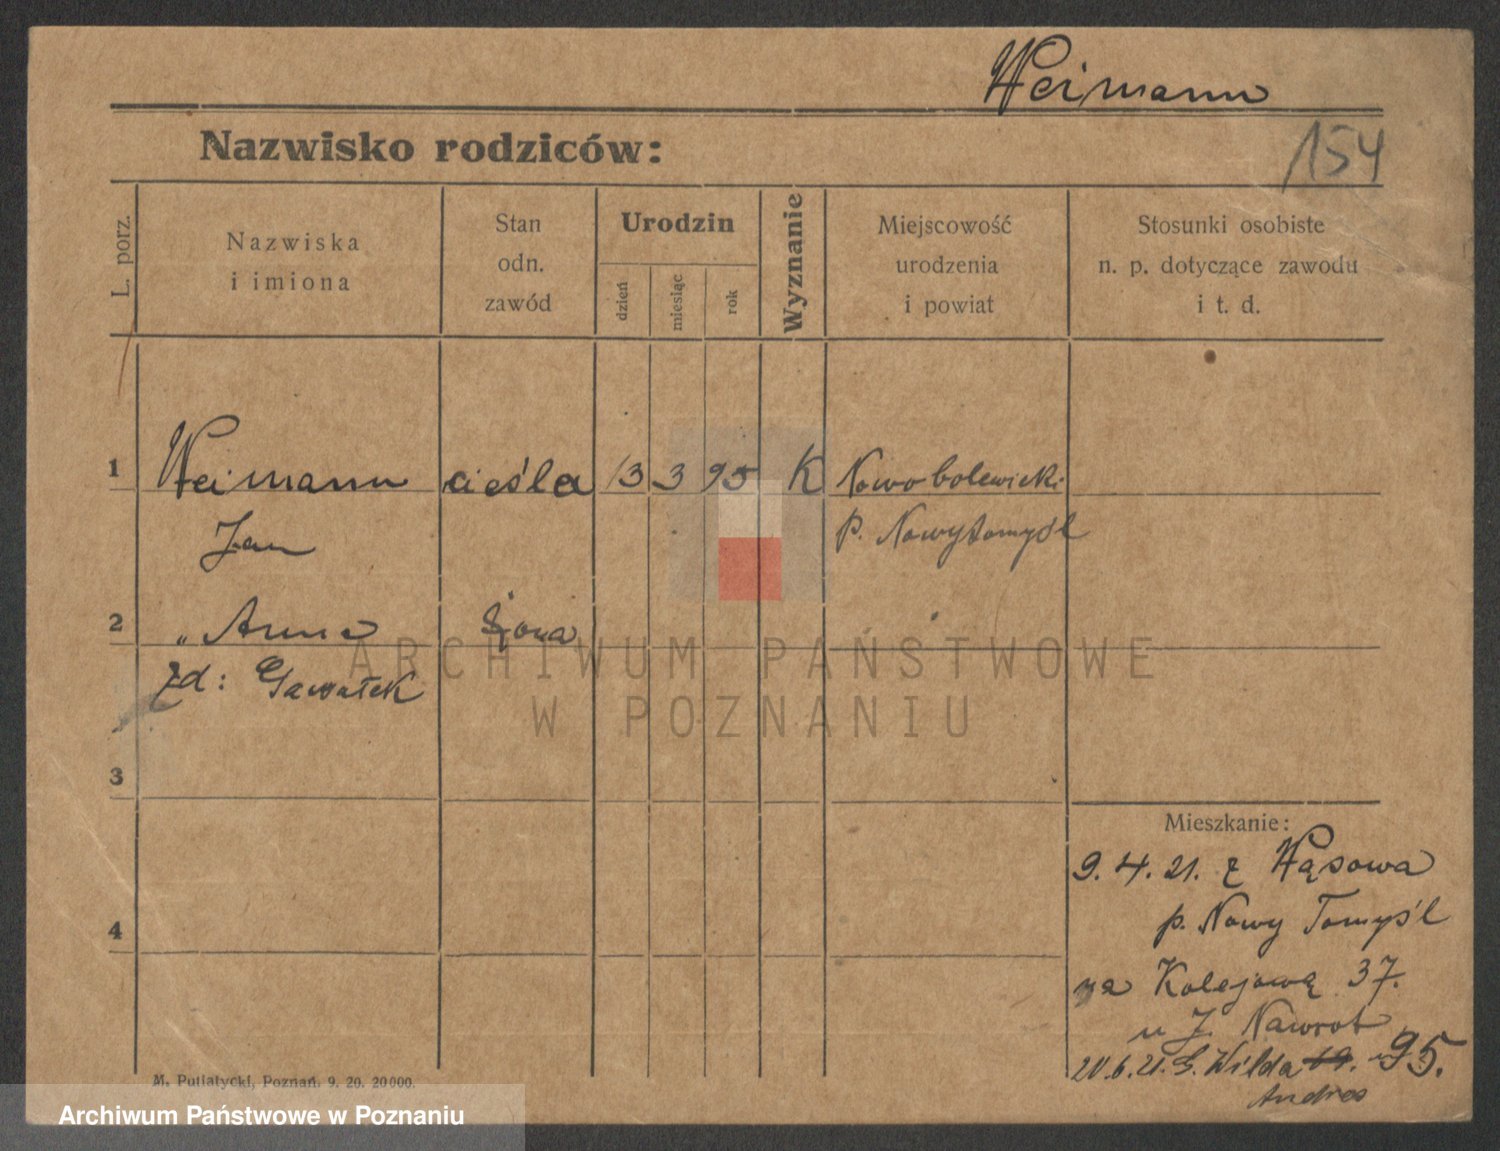 Weimann
Nazwisko rodziców:
154
L. porz.
Nazwiska
i imiona
Stan
odn.
zawód
Urodzin
dzień
miesiąc
rok
Wyznanie
Miejscowość
urodzenia
i powiat
Stosunki osobiste
n. p. dotyczące zawodu
i t. d.
1 Weimann cieśla 13 3 95 K Nowo bolewicki
Jan p. Nowytomyśl
2 „ Anna żona
zd: Gawałek
3
4
Mieszkanie:
9. 4. 21. z Wąsowa
p. Nowy Tomyśl
na Kolejową 37.
u J. Nawrot
20.6.21. G. Wilda 95.
Andres
M. Putiatycki, Poznań. 9. 20. 20000.
ARCHIWUM PAŃSTWOWE
W POZNANIU
Archiwum Państwowe w Poznaniu